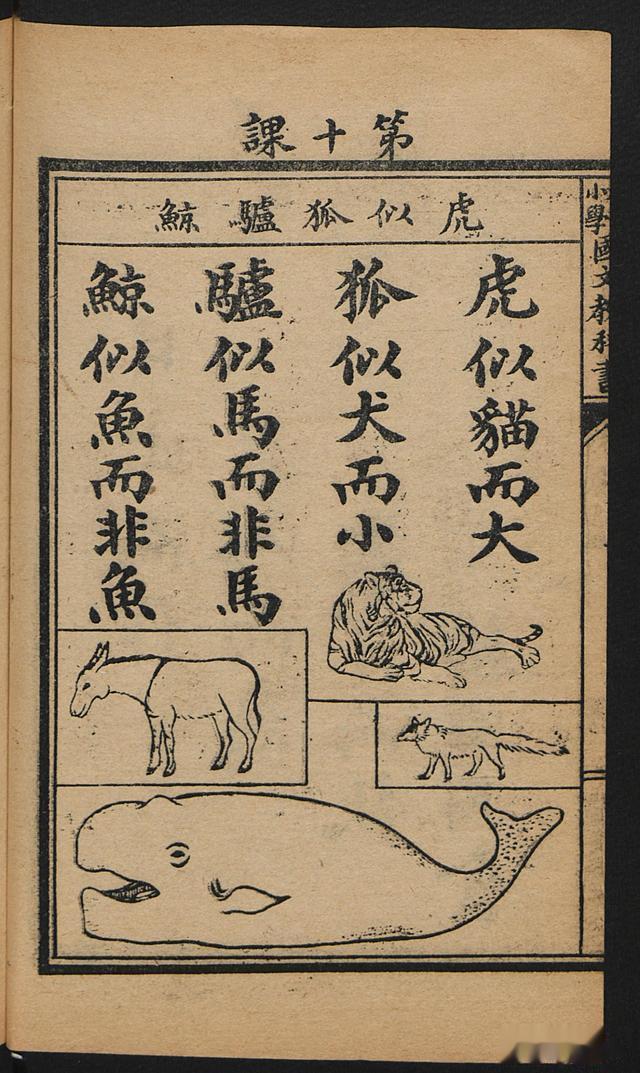 第十課
虎似狐驢鯨
虎似貓而大
狐似犬而小
驢似馬而非馬
鯨似魚而非魚
小學國文教科書